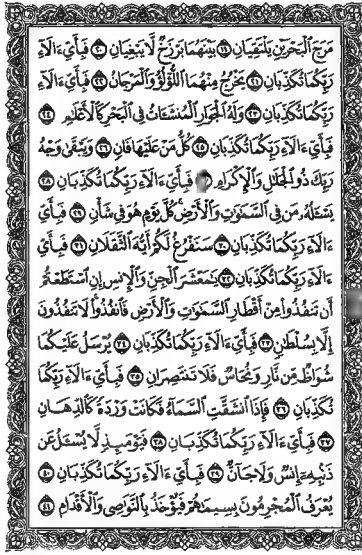 مَرَجَ ٱلْبَحْرَيْنِ يَلْتَقِيَانِ ١٩ بَيْنَهُمَا بَرْزَخٌ لَّا يَبْغِيَانِ ٢٠ فَبِأَىِّ ءَالَآءِ
رَبِّكُمَا تُكَذِّبَانِ ٢١ يَخْرُجُ مِنْهُمَا ٱللُّؤْلُؤُ وَٱلْمَرْجَانُ ٢٢ فَبِأَىِّ ءَالَآءِ
رَبِّكُمَا تُكَذِّبَانِ ٢٣ وَلَهُ ٱلْجَوَارِ ٱلْمُنشَـَٔاتُ فِى ٱلْبَحْرِ كَٱلْأَعْلَـٰمِ ٢٤
فَبِأَىِّ ءَالَآءِ رَبِّكُمَا تُكَذِّبَانِ ٢٥ كُلُّ مَنْ عَلَيْهَا فَانٍ ٢٦ وَيَبْقَىٰ وَجْهُ
رَبِّكَ ذُو ٱلْجَلَـٰلِ وَٱلْإِكْرَامِ فَبِأَىِّ ءَالَآءِ رَبِّكُمَا تُكَذِّبَانِ ٢٨
يَسْـَٔلُهُۥ مَن فِى ٱلسَّمَـٰوَٰتِ وَٱلْأَرْضِ ۚ كُلَّ يَوْمٍ هُوَ فِى شَأْنٍ ٢٩ فَبِأَىِّ
ءَالَآءِ رَبِّكُمَا تُكَذِّبَانِ ٣٠ سَنَفْرُغُ لَكُمْ أَيُّهَ ٱلثَّقَلَانِ ٣١ فَبِأَىِّ
ءَالَآءِ رَبِّكُمَا تُكَذِّبَانِ ٣٢ يَـٰمَعْشَرَ ٱلْجِنِّ وَٱلْإِنسِ إِنِ ٱسْتَطَعْتُمْ
أَن تَنفُذُوا۟ مِنْ أَقْطَارِ ٱلسَّمَـٰوَٰتِ وَٱلْأَرْضِ فَٱنفُذُوا۟ ۚ لَا تَنفُذُونَ
إِلَّا بِسُلْطَـٰنٍ ٣٣ فَبِأَىِّ ءَالَآءِ رَبِّكُمَا تُكَذِّبَانِ ٣٤ يُرْسَلُ عَلَيْكُمَا
شُوَاظٌ مِّن نَّارٍ وَنُحَاسٌ فَلَا تَنتَصِرَانِ ٣٥ فَبِأَىِّ ءَالَآءِ رَبِّكُمَا
تُكَذِّبَانِ ٣٦ فَإِذَا ٱنشَقَّتِ ٱلسَّمَآءُ فَكَانَتْ وَرْدَةً كَٱلدِّهَانِ
٣٧ فَبِأَىِّ ءَالَآءِ رَبِّكُمَا تُكَذِّبَانِ ٣٨ فَيَوْمَئِذٍ لَّا يُسْـَٔلُ عَن
ذَنۢبِهِۦٓ إِنسٌ وَلَا جَآنٌّ ٣٩ فَبِأَىِّ ءَالَآءِ رَبِّكُمَا تُكَذِّبَانِ ٤٠
يُعْرَفُ ٱلْمُجْرِمُونَ بِسِيمَـٰهُمْ فَيُؤْخَذُ بِٱلنَّوَٰصِى وَٱلْأَقْدَامِ ٤١